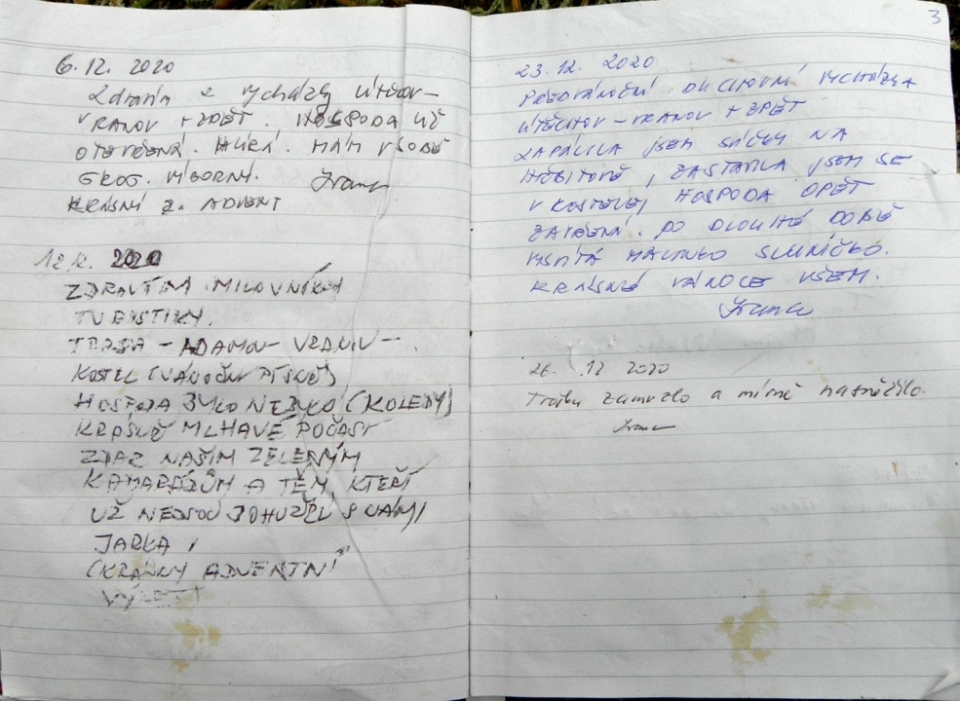 6. 12. 2020
Zdravím z vycházky ÚTĚCHOV –
VRANOV + ZPĚT. HOSPODA UŽ
OTEVŘENÁ. HURÁ. MÁM V SOBĚ
GROG. VÍBORNÍ.
KRÁSNÍ 2. ADVENT
12.12. 2020
ZDRAVÍM MILOVNÍKY
TURISTIKY.
TRASA – ADAMOV VRANOV – .
KOSTEL (VÁNOČNÍ PÍSNĚ)
HOSPODA BYLO NEBYLO (KOLEDY)
KRÁSNĚ MLHAVÉ POČASÍ
ZDAR NAŠIM ZELENÝM
KAMARÁDŮM A TĚM, KTEŘÍ
UŽ NEJSOU BOHUŽEL S NÁMI
JARKA
(KRÁSNÝ ADVENTNÍ
VÝLET)
3
23. 12. 2020
PŘEDVÁNOČNÍ DUCHOVNÍ VYCHÁZKA
ÚTĚCHOV – VRANOV + ZPĚT
ZAPÁLILA JSEM SVÍČKY NA
HŘBITOVĚ, ZASTAVILA JSEM SE
V KOSTELE, HOSPODA OPĚT
ZAVŘENÁ. PO DLOUHÉ DOBĚ
VISVÍTÁ MALINKO SLUNÍČKO.
KRÁSNÉ VÁNOCE VŠEM.
26. 12 2020
Trochu zamrzlo a mírně nasněžilo.